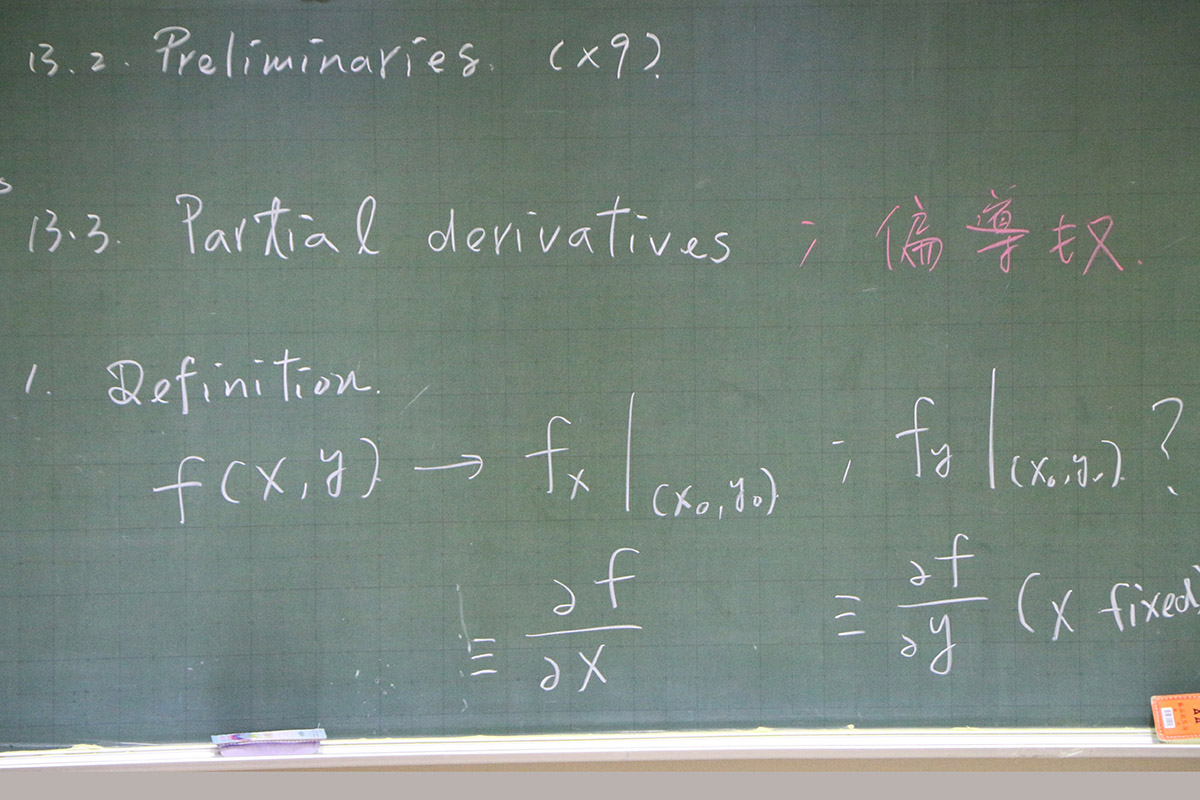 13.2. Preliminaries. (x9).
13.3. Partial derivatives ; 偏導
1. Definition.
f(x,y) → fx|(x₀,y₀) ; fy|(x₀,y₀) ?
≡ ∂f/∂x ≡ ∂f/∂y (x fixed)